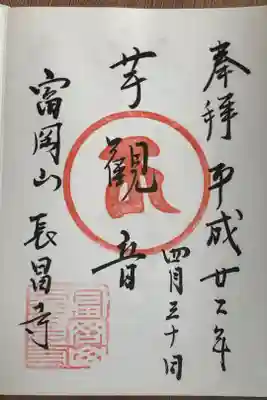 奉拝 平成廿二年
四月三十日
芋観音
富岡山 長昌寺